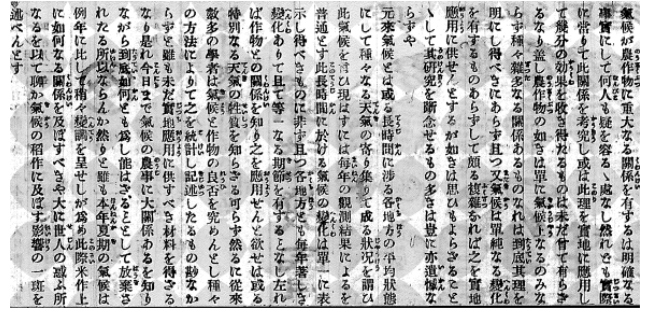 氣候が農作物に重大なる關係を有するは明確なる
事實にして何人も疑を容るゝ處なし然れども實際
に當りて此關係を考究し或は此理を實地に應用し
て幾分の効果を收き得たるものは未だ曾て有らざ
るなり蓋し農作物の如きは單に氣候上なるのみな
らず種々雜多なる關係あるものなれは到底其理を
明にし得べきにあらず且つ又氣候は單純なる變化
を有するものあらずして頗る複雜なれば之を實地
應用に供せんとするが如きは思ひもよらざること
ゝして其研究を斷念せるもの多きは豈に亦遺憾な
らずや
元來氣候とは或る長時間に渉る各地方の平均狀態
にして種々なる天氣の寄り集りて成る狀況を謂ひ
此氣候を言ひ現はすには每年の觀測結果によるを
普通とす此長時間に於ける氣候の變化は單一に表
示し得べきものに非ず且つ各地方とも每年著しき
變化ありて且て等一なる期節を有することなし左れ
ば作物との關係を知り之を應用せんと欲せば或る
特別なる天氣の性質を知らざる可らず然るに從來
數多の學者は氣候と作物の良否を究めんとし種々
の方法によりて之を統計し記述したるもの尠なか
らずと雖も未だ實地應用に供すべき材料を得ざる
なり是れ今日まで氣候の農事に大關係あるを知り
ながら到底如何とも爲し能はざることとして放棄さ
れたる所以ならんか然りと雖も本年夏期の氣候は
例年に比して稍々變調を呈せしが爲め此際米作上
に如何なる關係を及ぼすべきや大に世人の感ふ所
なるを以て聊か氣候の稻作に及ぼす影響の一斑を
述べんとす